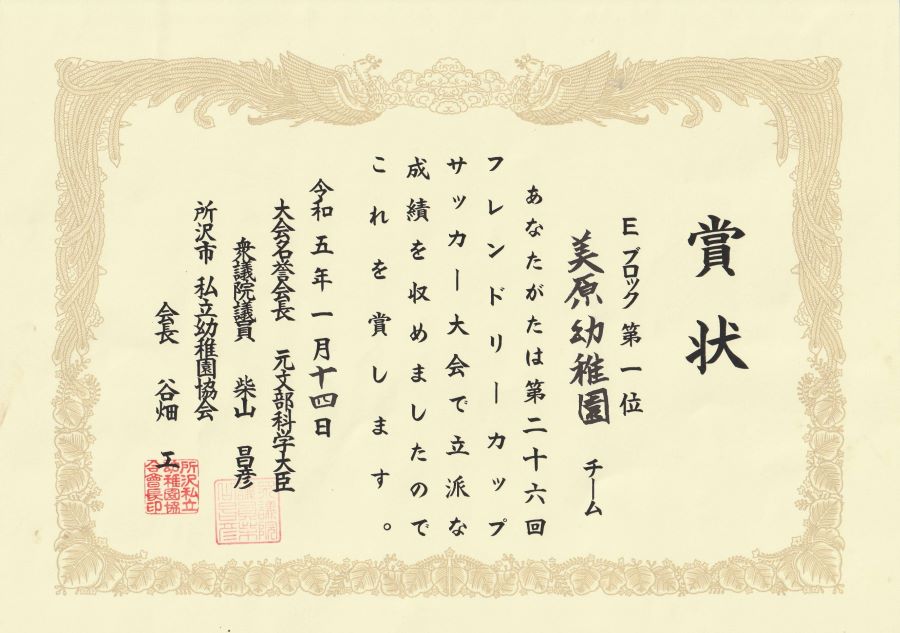 賞状
Eブロック 第一位
美原幼稚園 チーム
あなたがたは第二十六回
フレンドリーカップ
サッカー大会で立派な
成績を収めましたので
これを賞します。
令和五年一月十四日
大会名誉会長 元文部科学大臣
衆議院議員 柴山 昌彦
所沢市 私立幼稚園協会
会長 谷畑 工
所沢私立
幼稚園協
会會長印